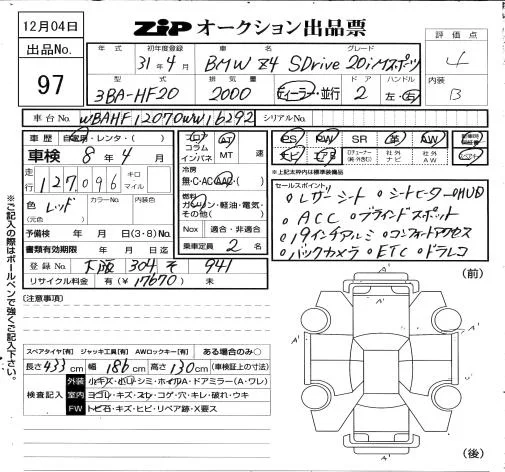 12月04日
ZIP オークション出品票
出品No.
97
評価点
4
内装
B
年式 初年度登録 車名 グレード
31年4月 BMW Z4 SDrive 20i Mスポーツ
型式 排気量 ドア ハンドル
3BA-HF20 2000 ディーラー・並行 2 左・右
車台No. WBAHF12070WW16292 シリアルNo.
車歴 自家用・レンタ・( )
車検 8年4月
走行 127,096 キロ マイル
色 レッド カラーNo. 内装色
(元色)
予備検 年 月 日(3・8)No.
書類有効期限 年 月 日迄
登録No. 大阪 304 そ 941
リサイクル料金 有(¥17670) 未
フロア コラム インパネ
AT MT 速
冷房
無・C・AC・AAC・( )
燃料
ガソリン・軽油・電気・その他( )
Nox 適合・非適合
乗車定員 2 名
PS PW SR 革 AW
ナビ エアB 社外ナビ 社外AW
※上記太枠内は標準装備品
セールスポイント
○レザーシート ○シートヒーター○HUD
○ACC ○ブラインドスポット
○19インチアルミ ○コンフォートアクセス
○バックカメラ ○ETC ○ドラレコ
※ご記入の際はボールペンで強くご記入下さい。
(注意事項)
スペアタイヤ[有] ジャッキ工具[有] AWロックキー[有] ある場合のみ○
長さ433cm 幅186cm 高さ130cm (車検証上の寸法)
検査記入
外装 小キズ・小凹・シミ・ホイルA・ドアミラー(A・ワレ)
室内 ヨゴレ・キズ・スレ・コゲ・穴・キレ・破れ・ウキ
FW トビ石・キズ・ヒビ・リペア跡・X要ス
(前)
A'
A'
A'
A'
(後)